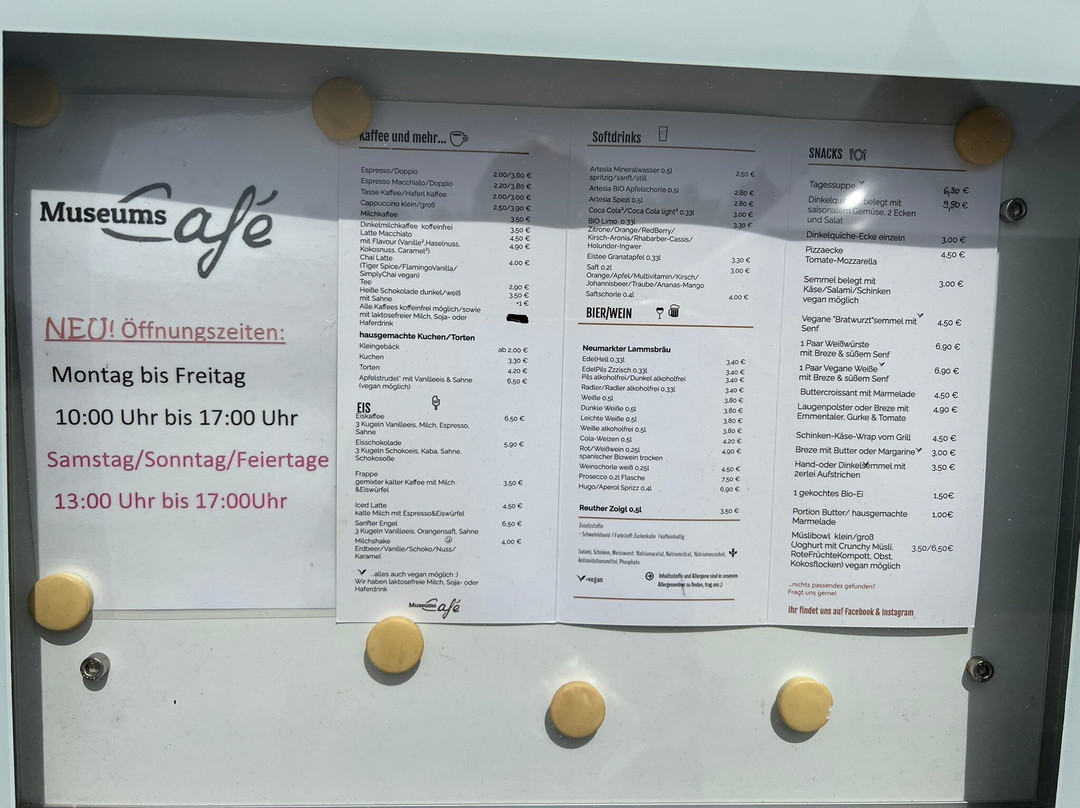 Museums Café
NEU! Öffnungszeiten:
Montag bis Freitag
10:00 Uhr bis 17:00 Uhr
Samstag/Sonntag/Feiertage
13:00 Uhr bis 17:00Uhr
Kaffee und mehr...
Espresso/Doppio 2.00/3.60 €
Espresso Macchiato/Doppio 2.20/3.80 €
Tasse Kaffee/Haferl Kaffee 2.00/3.00 €
Cappuccino klein/groß 2.50/3.90 €
Milchkaffee 3.50 €
Dinkelmilchkaffee koffeinfrei 3.50 €
Latte Macchiato 4.50 €
mit Flavour (Vanille², Haselnuss, 4.90 €
Kokosnuss, Caramel²)
Chai Latte 4.00 €
(Tiger Spice/FlamingoVanilla/
SimplyChai vegan)
Tee 2.90 €
Heiße Schokolade dunkel/weiß 3.50 €
mit Sahne +1 €
Alle Kaffees koffeinfrei möglich/sowie
mit laktosefreier Milch, Soja- oder
Haferdrink
hausgemachte Kuchen/Torten
Kleingebäck ab 2.00 €
Kuchen 3.30 €
Torten 4.20 €
Apfelstrudel* mit Vanilleeis & Sahne 6.50 €
(vegan möglich)
EIS
Eiskaffee 6.50 €
3 Kugeln Vanilleeis, Milch, Espresso,
Sahne
Eisschokolade 5.90 €
3 Kugeln Schokoeis, Kaba, Sahne,
Schokosoße
Frappe
gemixter kalter Kaffee mit Milch 3.50 €
&Eiswürfel
Iced Latte 4.50 €
kalte Milch mit Espresso&Eiswürfel
Sanfter Engel 6.50 €
3 Kugeln Vanilleeis, Orangensaft, Sahne
Milchshake 4.00 €
Erdbeer/Vanille/Schoko/Nuss/
Karamel
...alles auch vegan möglich :)
Wir haben laktosefreie Milch, Soja- oder
Haferdrink
Museums Café
Softdrinks
Artesia Mineralwasser 0.5l 2.50 €
spritzig/sanft/still
Artesia BIO Apfelschorle 0.5l 2.80 €
Artesia Spezi 0.5l 2.80 €
Coca Cola³/Coca Cola light³ 0.33l 3.00 €
BIO Limo 0.33l 3.30 €
Zitrone/Orange/RedBerry/
Kirsch-Aronia/Rhabarber-Cassis/
Holunder-Ingwer
Eistee Granatapfel 0.33l 3.30 €
Saft 0.2l 3.00 €
Orange/Apfel/Multivitamin/Kirsch/
Johannisbeer/Traube/Ananas-Mango
Saftschorle 0.4l 4.00 €
BIER/WEIN
Neumarkter Lammsbräu
EdelHell 0.33l 3.40 €
EdelPils Zzzisch 0.33l 3.40 €
Pils alkoholfrei/Dunkel alkoholfrei 3.40 €
Radler/Radler alkoholfrei 0.33l 3.40 €
Weiße 0,5l 3.80 €
Dunkle Weiße 0,5l 3.80 €
Leichte Weiße 0,5l 3.80 €
Weiße alkoholfrei 0.5l 3.80 €
Cola-Weizen 0,5l 4.20 €
Rot/Weißwein 0.25l 4.90 €
spanischer Biowein trocken
Weinschorle weiß 0.25l 4.50 €
Prosecco 0.2l Flasche 7.50 €
Hugo/Aperol Sprizz 0.4l 6.90 €
Reuther Zoigl 0,5l 3.50 €
Zusatzstoffe:
Salami, Schinken, Weisswurst: Natriumacetat, Natriumcitrat, Natriumascorbat,
Antioxidationsmittel, Phosphate
=vegan
Inhaltsstoffe und Allergene sind in unseren
Allergenordner zu finden, frag uns ;)
SNACKS
Tagessuppe 6,90 €
Dinkelquiche belegt mit 9,50 €
saisonalem Gemüse, 2 Ecken
und Salat
Dinkelquiche-Ecke einzeln 3,00 €
Pizzaecke 4.50 €
Tomate-Mozzarella
Semmel belegt mit 3,00 €
Käse/Salami/Schinken
vegan möglich
Vegane "Bratwurst"semmel mit 4,50 €
Senf
1 Paar Weißwürste 6,90 €
mit Breze & süßem Senf
1 Paar Vegane Weiße 6,90 €
mit Breze & süßem Senf
Buttercroissant mit Marmelade 4,50 €
Laugenpolster oder Breze mit 4,90 €
Emmentaler, Gurke & Tomate
Schinken-Käse-Wrap vom Grill 4,50 €
Breze mit Butter oder Margarine 3,00 €
Hand-oder Dinkelsemmel mit 3,50 €
2erlei Aufstrichen
1 gekochtes Bio-Ei 1,50€
Portion Butter/ hausgemachte 1,00€
Marmelade
Müslibowl klein/groß
(Joghurt mit Crunchy Müsli, 3.50/6,50€
RoteFrüchteKompott, Obst,
Kokosflocken) vegan möglich
...nichts passendes gefunden?
Fragt uns gerne!
Ihr findet uns auf Facebook & Instagram